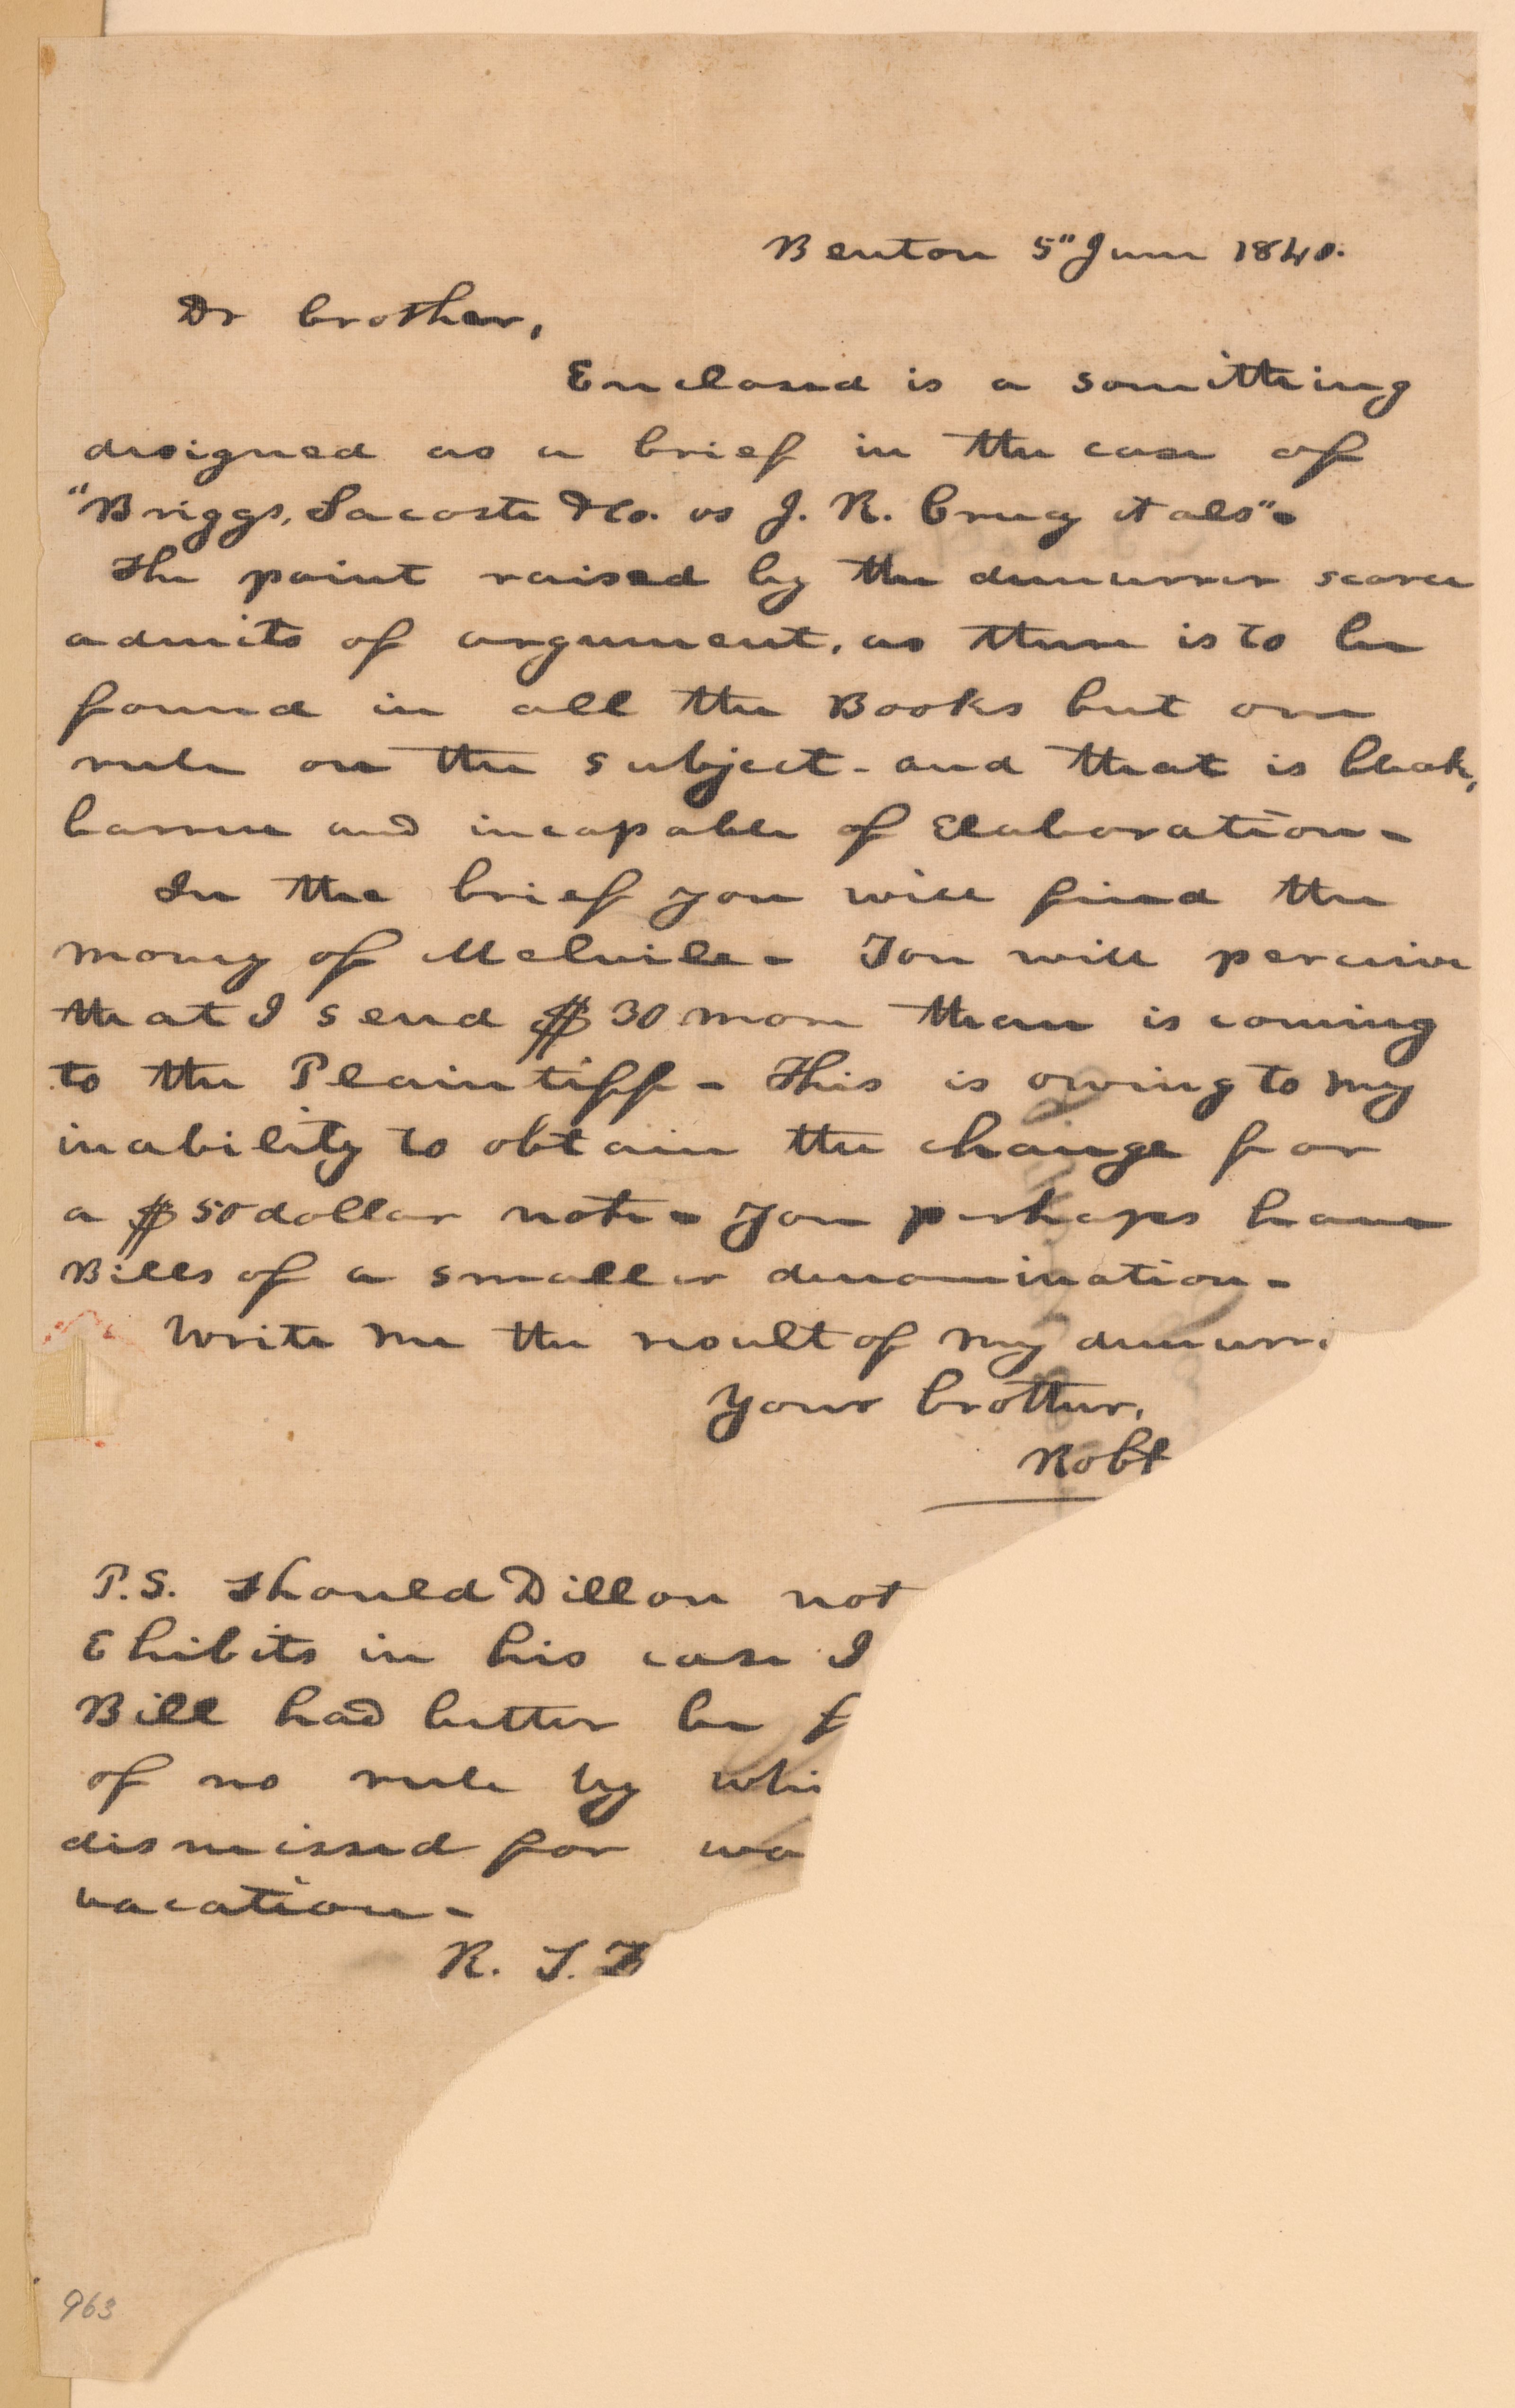 Benton 5" June 1840.
Dr brother,
Enclosed is a something
designed as a brief in the case of
"Briggs, Lacoste & Co. vs J. R. Creecy et als"-
The point raised by the demurrer scarce
admits of argument, as there is to be
found in all the Books but one
rule on the subject - and that is bleak,
barren and incapable of Elaboration-
In the brief you will find the
money of Melvile- You will perceive
that I send $30 more than is coming
to the Plaintiff - This is owing to my
inability to obtain the change for
a $50 dollar note- you perhaps have
Bills of a smaller denomination-
Write me the result of my demurre
Your brother,
Robt
P.S. Should Dillon not
Ehibits in his case I
Bill had better be f
of no rule by whi
dismissed for wa
vacation-
R. J. W
963